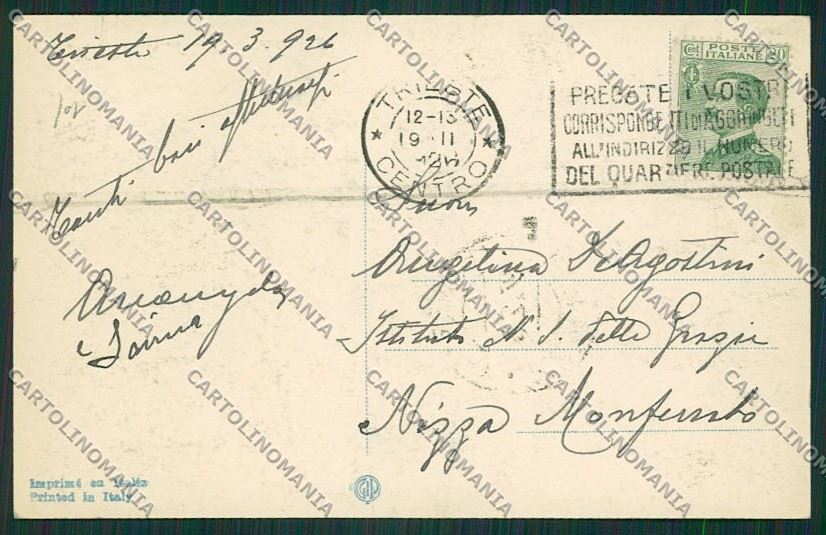 Trieste 19 3 926
Tanti baci affettuosi
TRIESTE
12-13
19 · II
926
CENTRO
POSTE
ITALIANE
Cent 20
PREGATE I VOSTRI
CORRISPONDENTI DI AGGIUNGERE
ALL'INDIRIZZO IL NUMERO
DEL QUARTIERE POSTALE
Suor
Angelina DeAgostini
Istituto N. S. delle Grazie
Nizza Monferrato
Imprimé en Italie
Printed in Italy
CARTOLINOMANIA